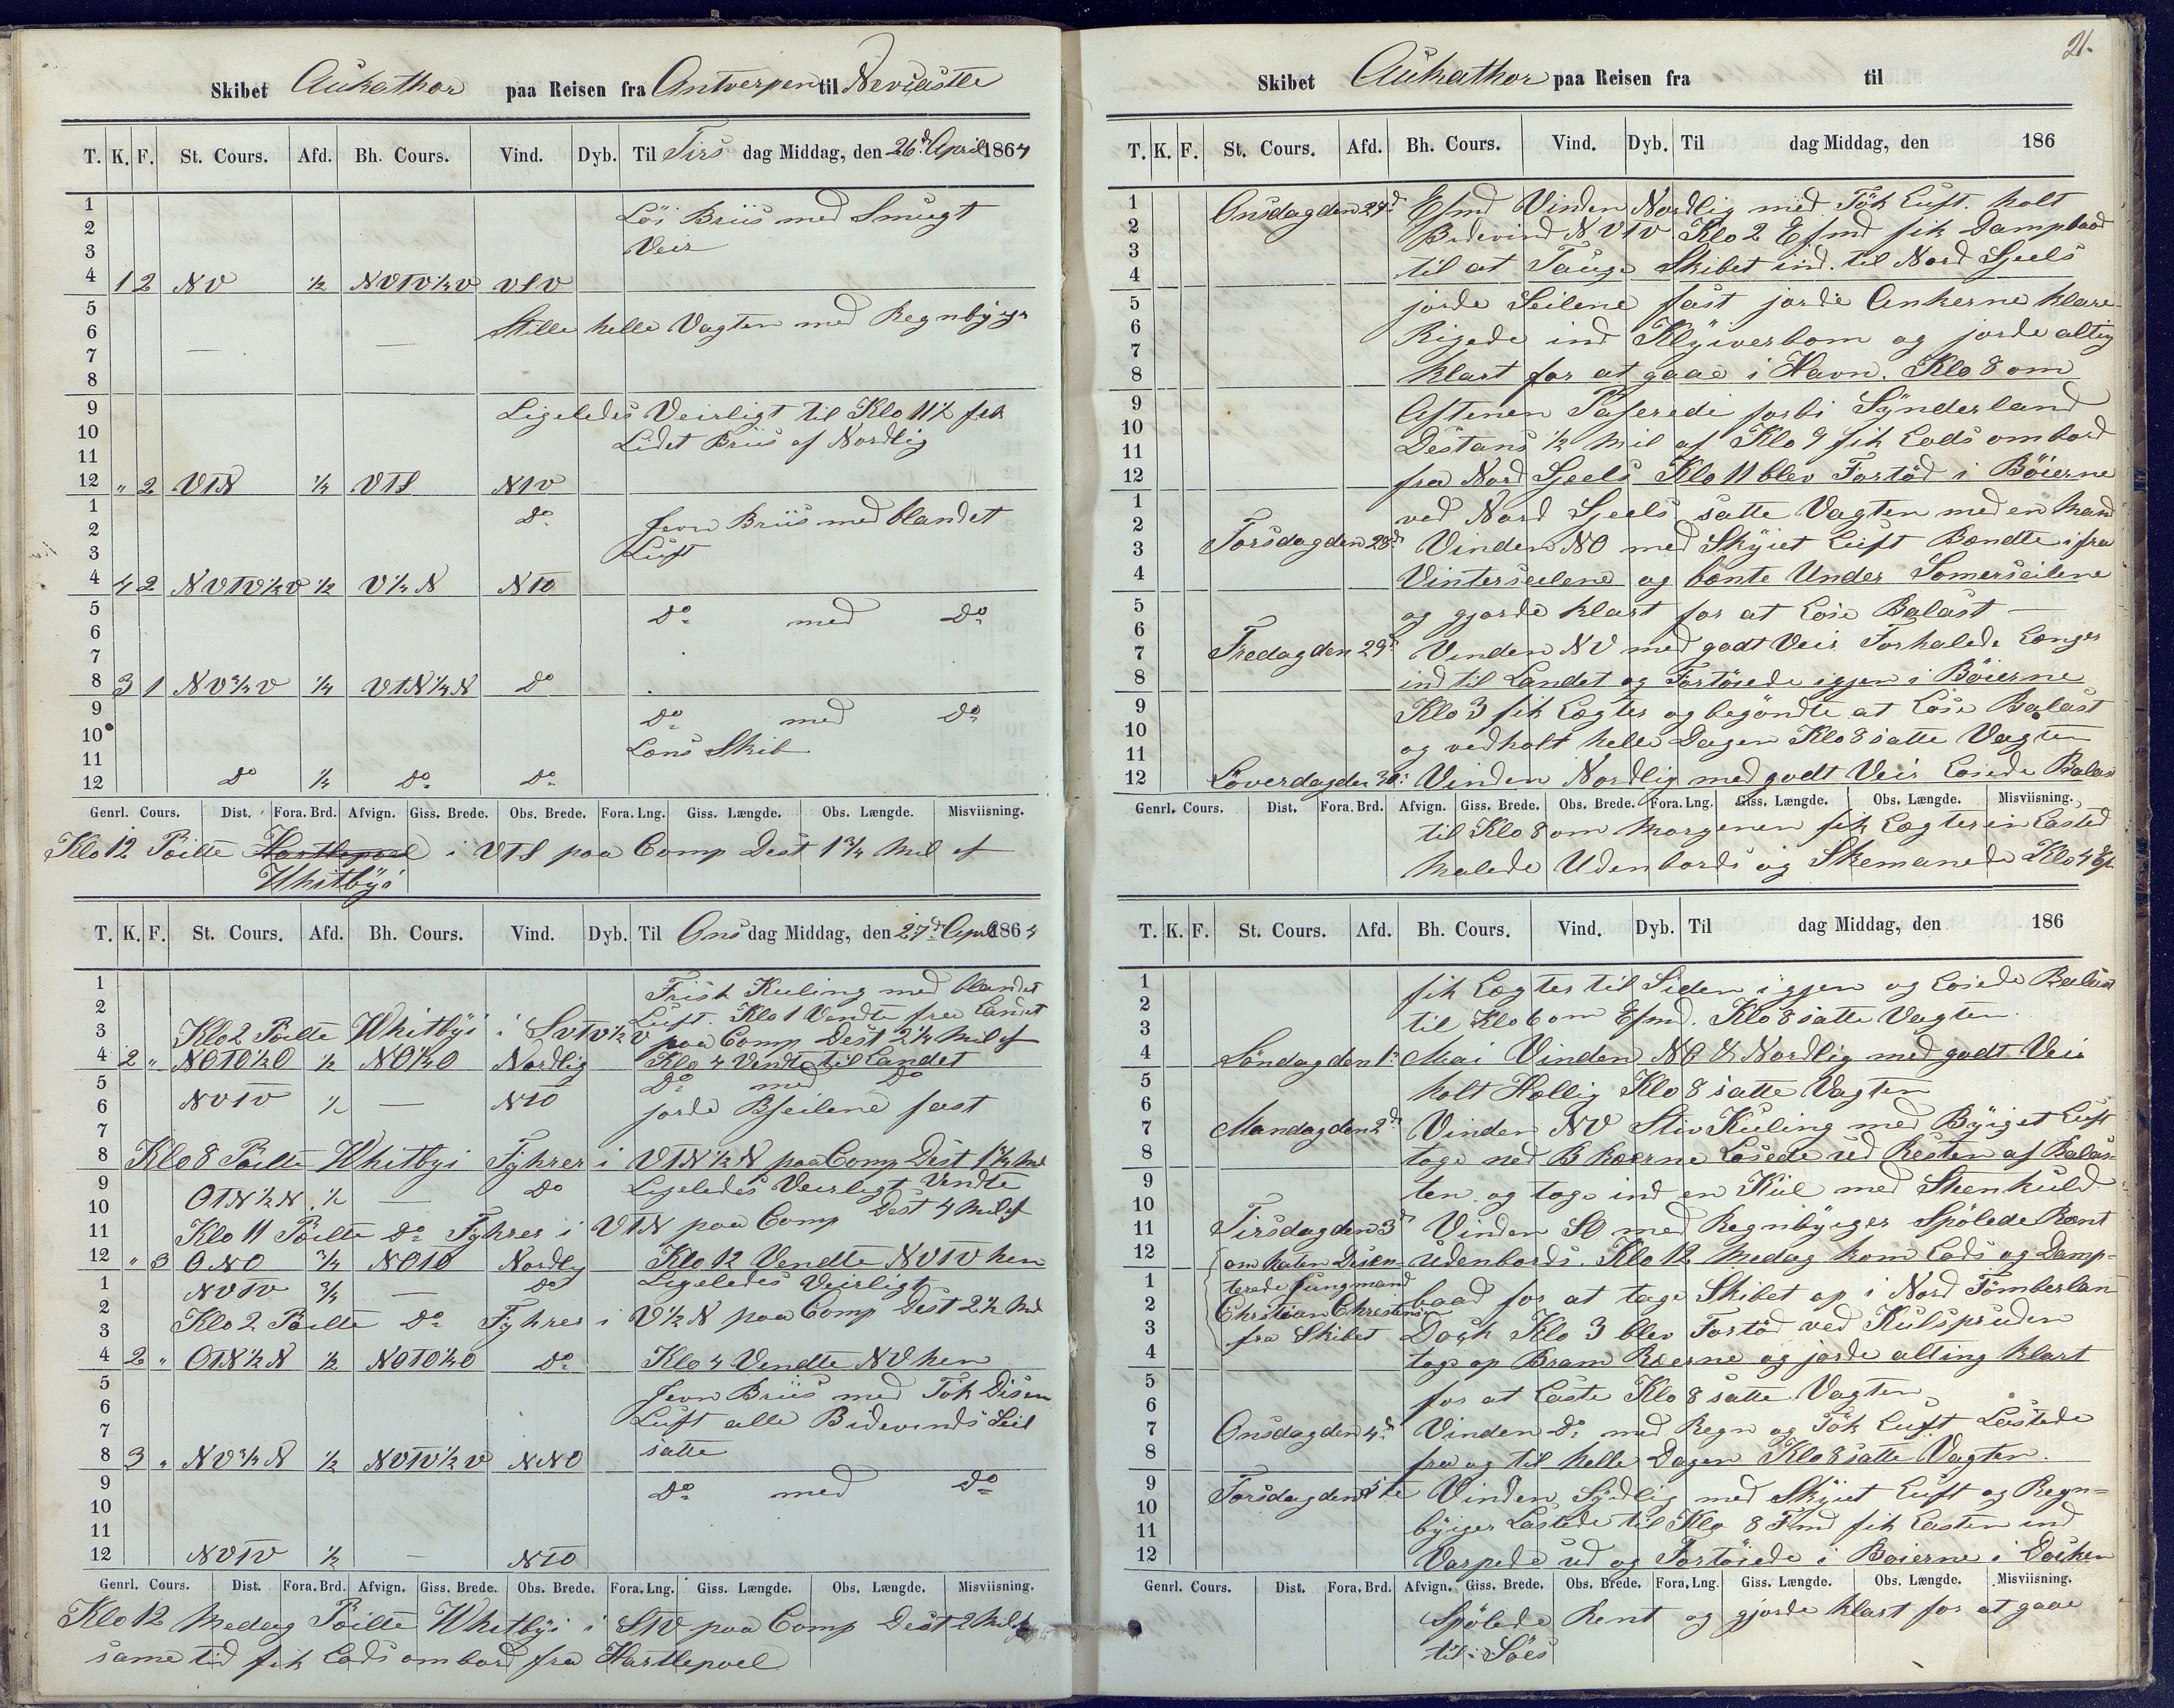 Skibet Aukathor paa Reisen fra Antverpen til Nevcastle
T. K. F. St. Cours. Afd. Bh. Cours. Vind. Dyb. Til Tirs dag Middag, den 26d April 1864
1 Löi Briis med Smugt
2 Veir
3
4 1 2 NV ½ NVTV½V VSV
5 Stille helle Vagten med Regnbyger
6
7 — —
8
9 Ligeledes Veirligt til Klo 11½ fik
10 Lidet Briis af Nordlig
11
12 " 2 VTN ¼ VTS NTV
1 Do Jevn Briis med blandet
2 Luft
3
4 4 2 NVTV½V ½ V½N NTO
5 Do med Do
6
7
8 3 1 NV¾V ¼ VTN¼N Do
9 Do med Do
10 Lens Skib
11
12 Do ¼ Do Do
Genrl. Cours. Dist. Fora. Brd. Afvign. Giss. Brede. Obs. Brede. Fora. Lng. Giss. Længde. Obs. Længde. Misviisning.
Klo 12 Peilte Hartlepoel i VTS paa Comp Dest 1¾ Mil af
Whitbyi
T. K. F. St. Cours. Afd. Bh. Cours. Vind. Dyb. Til Ons dag Middag, den 27d April 1864
1 Frisk Kuling med blandet
2 Luft. Klo 1 Vendte fra Landet
3 Klo 2 Peilte Whitbyi i SVTV½V paa Comp Dest 2¼ Mil af
4 2 " NOTO½O ½ NO½O Nordlig Klo 4 Vendte til Landet
5 Do med Do
6 NVTV ½ — NTO jorde Bseilene fast
7
8 Klo 8 Peilte Whitbyi Fyhrer i VTN½N paa Comp Dest 1½ Mil
9 Ligeledes Veirligt Vendte
10 OTN½N ½ — Do
11 Klo 11 Peilte Do Fyhrer i VTN paa Comp Dest 4 Mil af
12 " 3 ONO ¾ NOTO Nordlg Klo 12 Vendte NVTV hen
1 NVTV ¾ — Do Ligeledes Veirligt
2 Klo 2 Peilte Do Fyhrer i V½N paa Comp Dest 2½ Mil
3
4 2 " OTN½N ½ NOTO½O Do Klo 4 Vendte NV hen
5 Jevn Briis med Tök Disen
6 Luft alle Bidevinds Seil
7 satte
8 3 " NV¾N ½ NVTV½V NNO
9 Do med Do
10
11
12 NVTV ½ — NTO
Genrl. Cours. Dist. Fora. Brd. Afvign. Giss. Brede. Obs. Brede. Fora. Lng. Giss. Længde. Obs. Længde. Misviisning.
Klo 12 Medag Peilte Whitbyi i STV paa Comp Dest 2 Mil af
same tid fik Lods ombord fra Hartlepoel
21.
Skibet Aukathor paa Reisen fra til
T. K. F. St. Cours. Afd. Bh. Cours. Vind. Dyb. Til dag Middag, den 186
1 Onsdag den 27d Efmd Vinden Nordlig med Tök Luft. holt
2 Bidevind NVTV Klo 2 Efmd fik Dampbaad
3 til at Tauge Skibet ind til Nord Sjeels
4
5 jorde Seilene fast jorde Ankerne klare
6 Rigede ind Klyiverbom og jorde alting
7
8 klart for at gaae i Havn. Klo 8 om
9 Aftenen Paserede forbi Synderland
10 Destans ½ Mil af Klo 9 fik Lods ombord
11
12 fra Nord Sjeels Klo 11 blev Fortöd i Böierne
1 ved Nord Sjeels satte Vagten med en Mand
2
3 Torsdag den 28d Vinden NO med Skyiet Luft Bændte ifra
4 Vinterseilene og bænte Under Somerseilene
5 og gjorde klart for at Lose Balast —
6
7 Fredag den 29d Vinden NV med godt Veir Forhalede Længer
8 ind til Landet og Fortöiede igjen i Böierne
9 Klo 3 fik Lægter og begöndte at Lose Balast
10 og vedholt helle Dagen Klo 8 satte Vagten
11
12 Löverdag den 30: Vinden Nordlig med godt Veir Losede Balast
Genrl. Cours. Dist. Fora. Brd. Afvign. Giss. Brede. Obs. Brede. Fora. Lng. Giss. Længde. Obs. Længde. Misviisning.
til Klo 8 om Morgenen fik Lægteren Lasted
Malede Udenbords og Skemanede Klo 4 Ef
T. K. F. St. Cours. Afd. Bh. Cours. Vind. Dyb. Til dag Middag, den 186
1 fik Lægter til Siden igjen og Losede Balast
2 til Klo 6 om Efmd. Klo 8 satte Vagten.
3
4 Söndag den 1: Mai Vinden NO & Nordlig med godt Veir
5 holt Hellig Klo 8 satte Vagten
6
7 Mandag den 2d Vinden NV Stiv Kuling med Byiget Luft
8 toge ned B Ræerne Losede ud Resten af Balas-
9 ten. og toge ind en Kiel med Steenkuld
10
11 Tirsdag den 3d Vinden SO med Regnbyiger Spölede Rænt
12 om Naten Desen- Udenbords. Klo 12 Medag kom Lods og Damp-
1 terede Jungmand baad for at tage Skibet op i Nord Tömberlan
2 Christian Christensen
3 fra Skibet Dock Klo 3 blev Fortöd ved Kulspruden
4 toge op Bram Ræerne og jorde alting klart
5 for at Laste Klo 8 satte Vagten
6
7 Onsdag den 4d Vinden Do med Regn og Tök Luft Lastede
8 fra og til helle Dagen Klo 8 satte Vagten.
9 Torsdag den 5te Vinden Sydlig med Skyiet Luft og Regn-
10 byiger Lastede til Klo 8 Fmd fik Lasten ind
11
12 Varpede ud og Fortöiede i Böierne i Docken
Genrl. Cours. Dist. Fora. Brd. Afvign. Giss. Brede. Obs. Brede. Fora. Lng. Giss. Længde. Obs. Længde. Misviisning.
Spölede Rent og gjorde klart for at gaae
til Söes